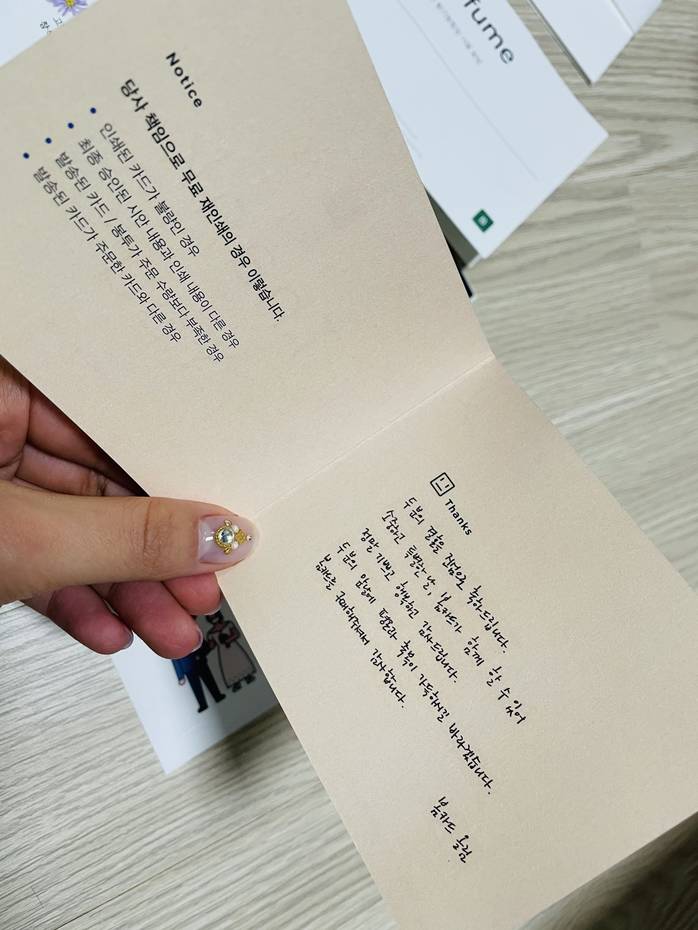 fume
Notice
당사 책임으로 무료 재인쇄의 경우 이렇습니다.
• 인쇄된 카드가 불량인 경우
• 최종 승인된 시안 내용과 인쇄 내용이 다른 경우
• 발송된 카드 / 봉투가 주문 수량보다 부족한 경우
• 발송된 카드가 주문한 카드와 다른 경우
Thanks
두 분의 결혼을 진심으로 축하드립니다.
소중하고 특별한 날, 봄카드가 함께 할 수 있어
정말 기쁘고 행복하고 감사드립니다.
두 분의 앞날에 평온과 축복이 가득하시길 바라겠습니다.
봄카드를 구매해주셔서 감사합니다.
봄카드 드림